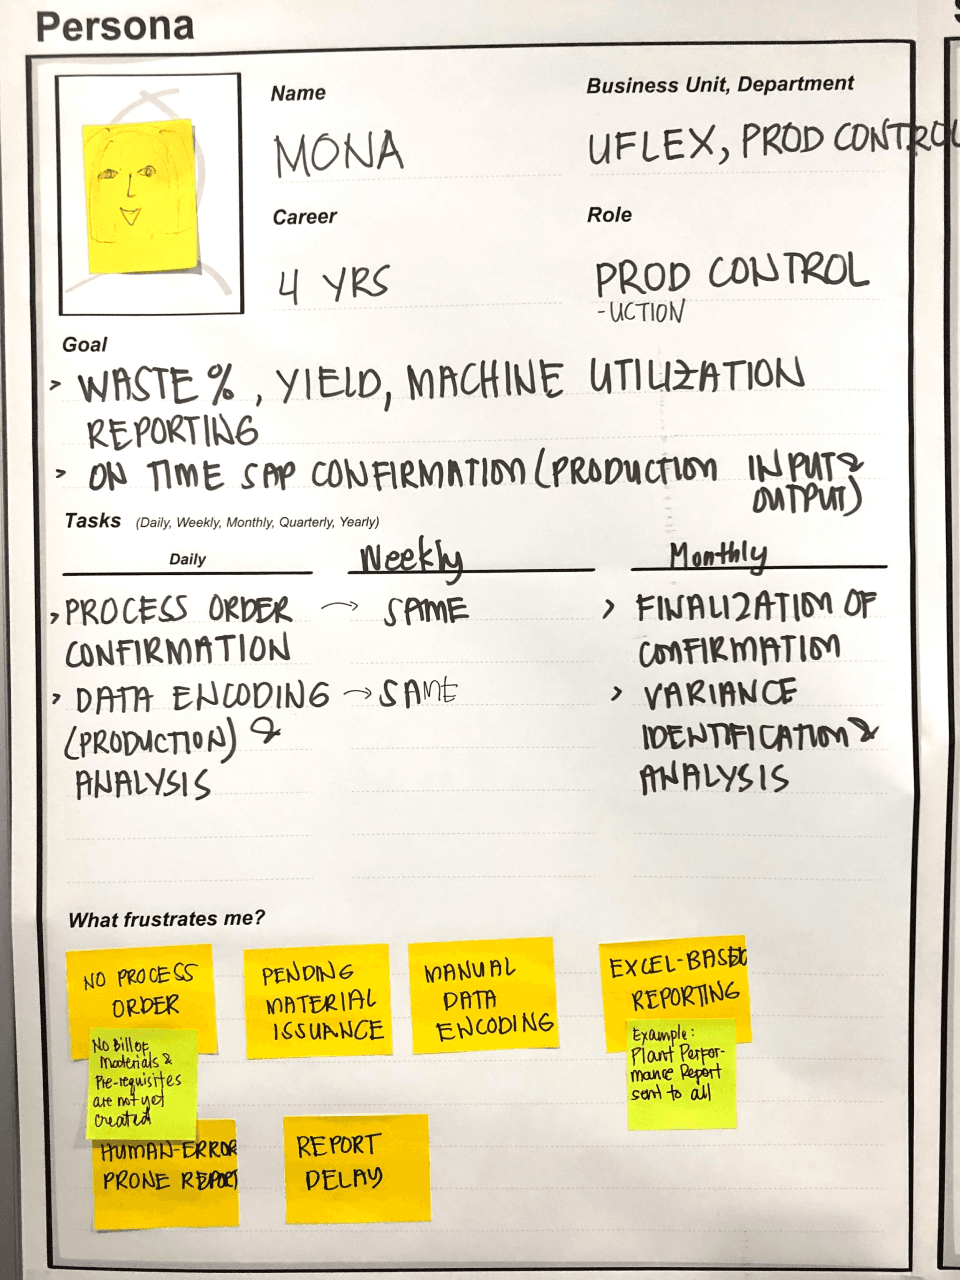 Persona
Name
MONA
Business Unit, Department
UFLEX, PROD CONTROL
Career
4 YRS
Role
PROD CONTROL
-UCTION
Goal
> WASTE %, YIELD, MACHINE UTILIZATION
REPORTING
> ON TIME SAP CONFIRMATION (PRODUCTION INPUT &
OUTPUT)
Tasks (Daily, Weekly, Monthly, Quarterly, Yearly)
Daily
> PROCESS ORDER
CONFIRMATION
> DATA ENCODING
(PRODUCTION) &
ANALYSIS
Weekly
→ SAME
→ SAME
Monthly
> FINALIZATION OF
CONFIRMATION
> VARIANCE
IDENTIFICATION &
ANALYSIS
What frustrates me?
NO PROCESS
ORDER
No Bill of
Materials &
Pre-requisites
are not yet
created
PENDING
MATERIAL
ISSUANCE
MANUAL
DATA
ENCODING
EXCEL-BASED
REPORTING
Example:
Plant Perfor-
mance Report
sent to all
HUMAN-ERROR
PRONE REPORT
REPORT
DELAY